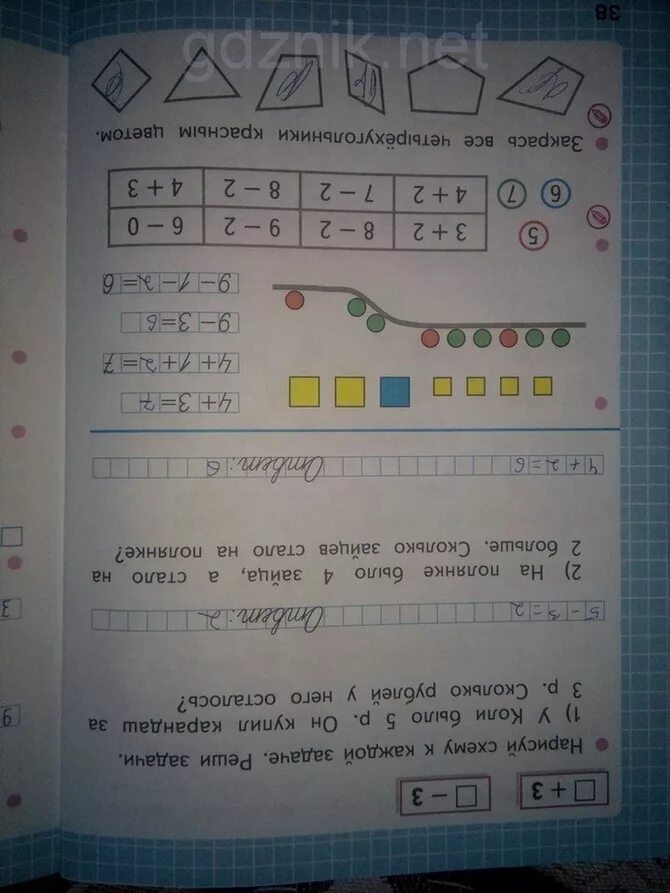 □ + 3 □ − 3
Нарисуй схему к каждой задаче. Реши задачи.
1) У Коли было 5 р. Он купил карандаш за
3 р. Сколько рублей у него осталось?
5−3=2 Ответ: 2
2) На полянке было 4 зайца, а стало на
2 больше. Сколько зайцев стало на полянке?
4+2=6 Ответ: 6
4+3=7
4+1+2=7
9−3=6
9−1−2=6
5 3 + 2 8 − 2 9 − 2 6 − 0
6 7 4 + 2 7 − 2 8 − 2 4 + 3
Закрась все четырёхугольники красным цветом.
38
gdznik.net
9
3